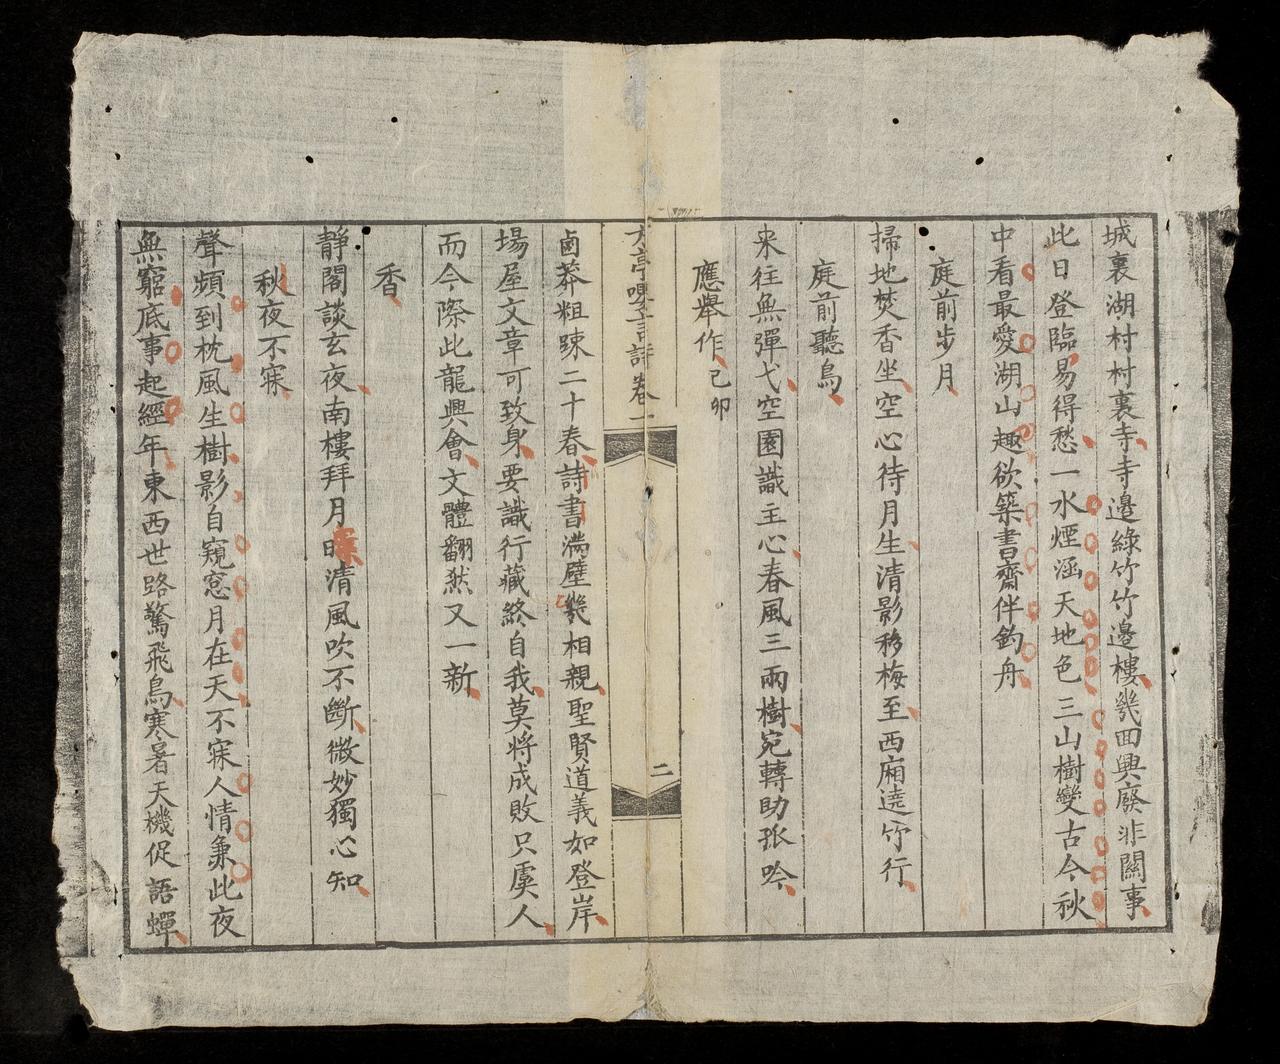 城裏湖村村裏寺寺邉綠竹竹邉樓幾回興廢非關事
此日登臨易得愁一水煙涵天地色三山樹變古今秋
中看最愛湖山趣欲築書齋伴釣舟
庭前步月
掃地焚香坐空心待月生清影移梅至西廂遶竹行
庭前聽鳥
來往無彈弋空園識主心春風三兩樹宛轉助孤吟
應舉作己卯
亭詩卷一
二
鹵莽粗踈二十春詩書滿壁幾相親聖賢道義如登岸
場屋文章可致身要識行藏終自我莫將成敗只虞人
而今際此龍興會文體翻然又一新
香
靜閣談玄夜南樓拜月時清風吹不斷微妙獨心知
秋夜不寐
聲頻到枕風生樹影自窺窓月在天不寐人情兼此夜
無窮底事起經年東西世路驚飛鳥寒暑天機促語蟬